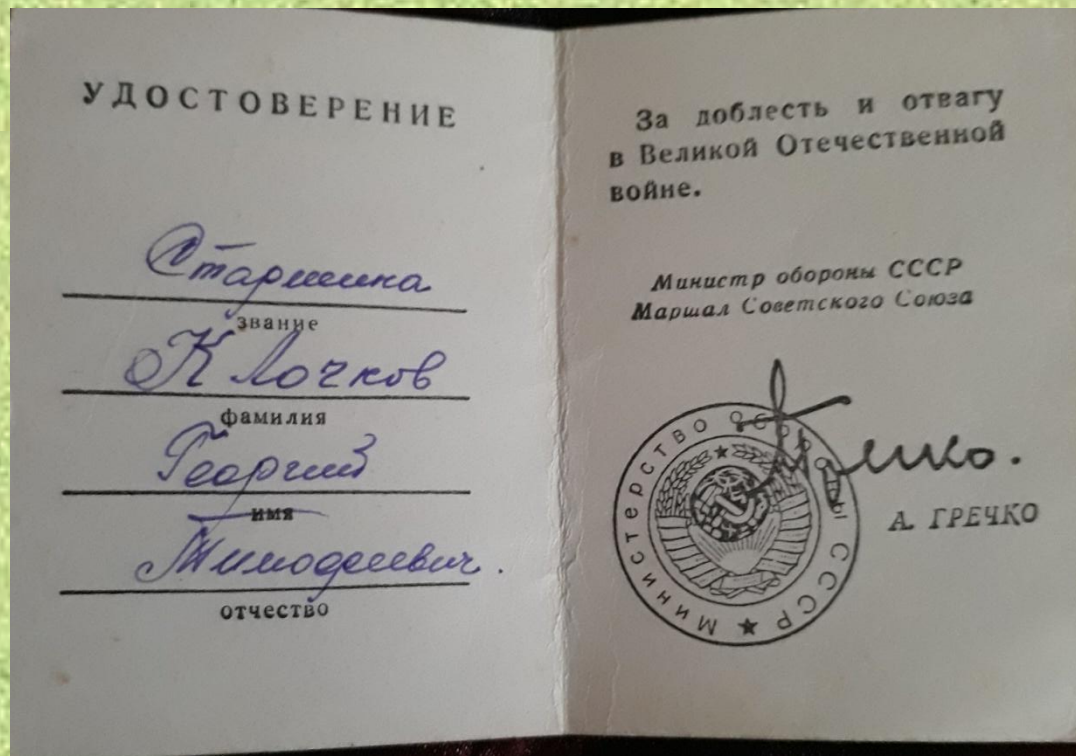 УДОСТОВЕРЕНИЕ
Старшина
звание
Клочков
фамилия
Георгий
имя
Тимофеевич.
отчество
За доблесть и отвагу
в Великой Отечественной
войне.
Министр обороны СССР
Маршал Советского Союза
МИНИСТЕРСТВО ОБОРОНЫ СССР
А. ГРЕЧКО